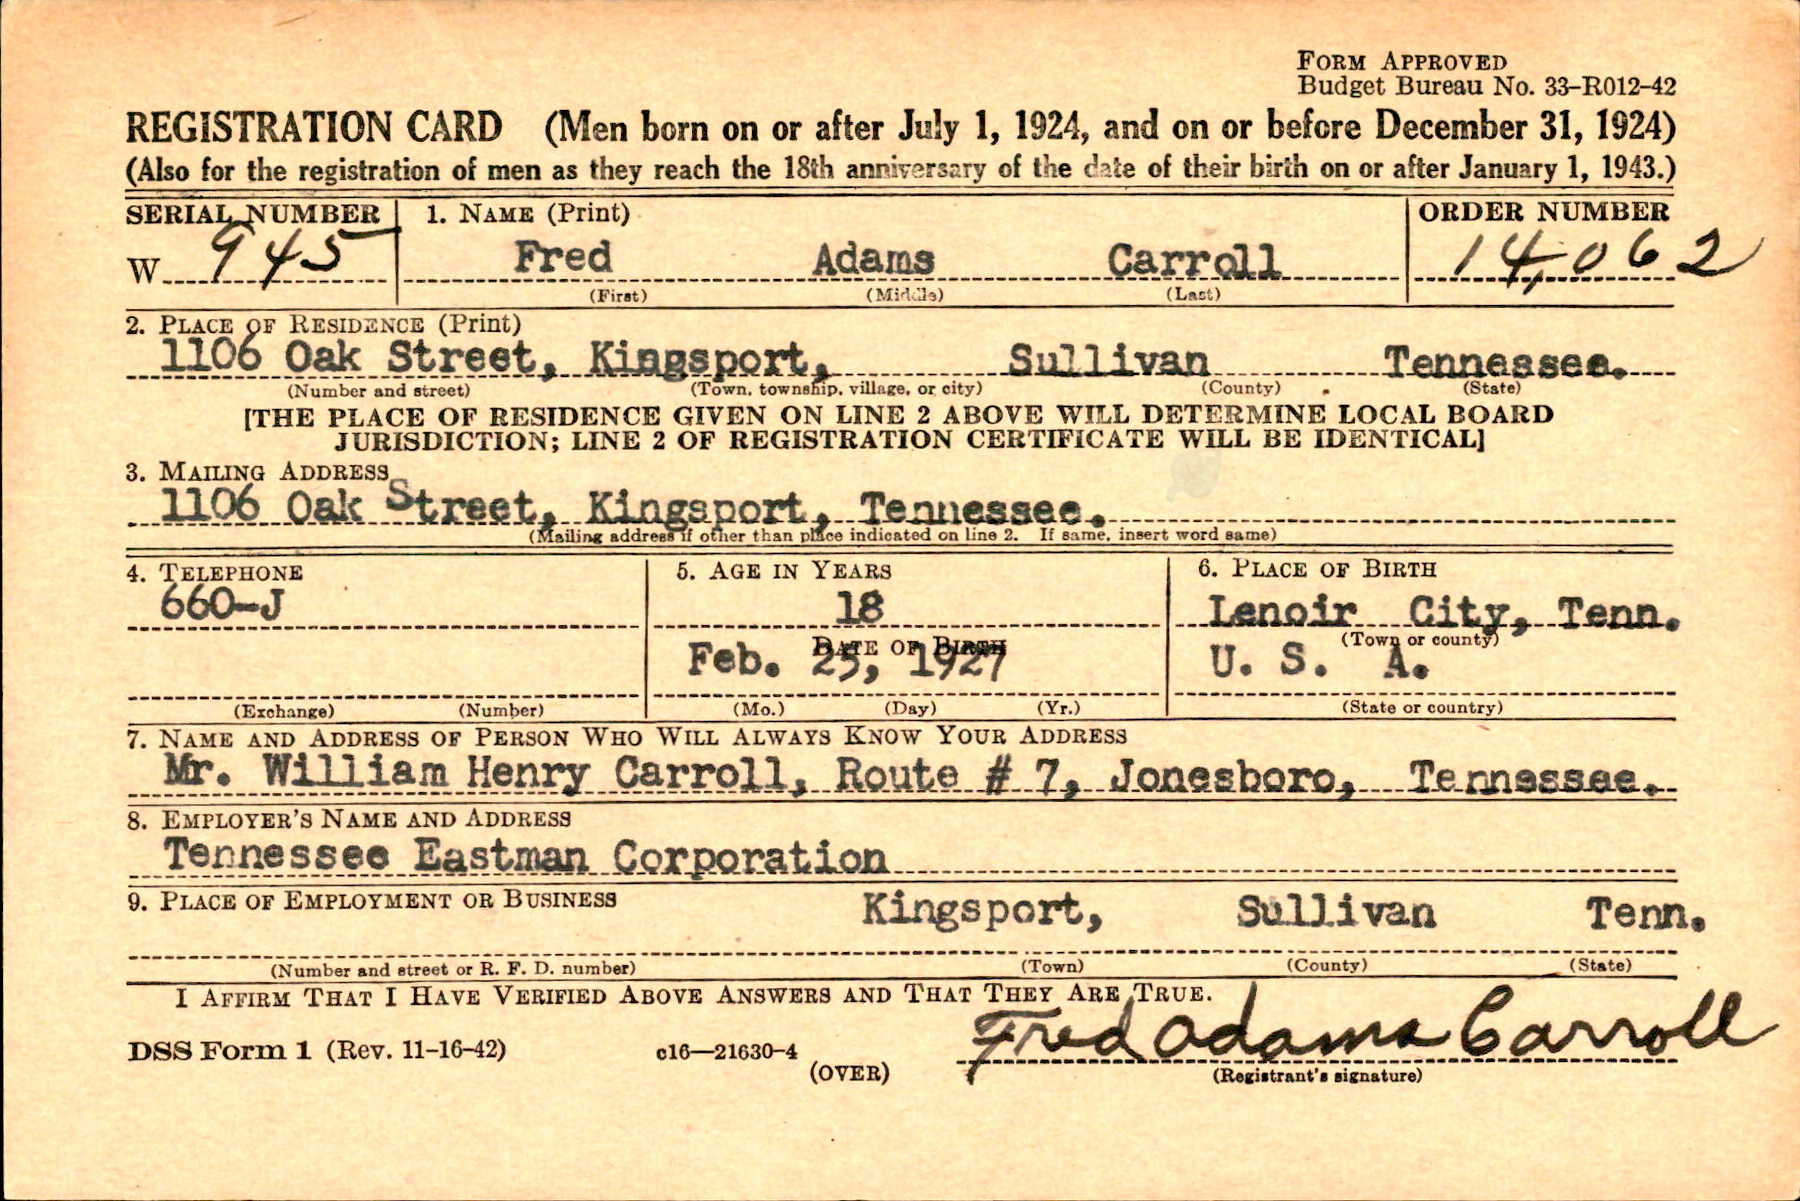 FORM APPROVED
Budget Bureau No. 33-R012-42
REGISTRATION CARD (Men born on or after July 1, 1924, and on or before December 31, 1924)
(Also for the registration of men as they reach the 18th anniversary of the date of their birth on or after January 1, 1943.)
SERIAL NUMBER 1. NAME (Print) ORDER NUMBER
W 945 Fred Adams Carroll 14,062
(First) (Middle) (Last)
2. PLACE OF RESIDENCE (Print)
1106 Oak Street, Kingsport, Sullivan Tennessee.
(Number and street) (Town, township, village, or city) (County) (State)
[THE PLACE OF RESIDENCE GIVEN ON LINE 2 ABOVE WILL DETERMINE LOCAL BOARD
JURISDICTION; LINE 2 OF REGISTRATION CERTIFICATE WILL BE IDENTICAL]
3. MAILING ADDRESS
1106 Oak Street, Kingsport, Tennessee.
(Mailing address if other than place indicated on line 2. If same, insert word same)
4. TELEPHONE 5. AGE IN YEARS 6. PLACE OF BIRTH
660-J 18 Lenoir City, Tenn.
DATE OF BIRTH (Town or county)
Feb. 25, 1927 U. S. A.
(Exchange) (Number) (Mo.) (Day) (Yr.) (State or country)
7. NAME AND ADDRESS OF PERSON WHO WILL ALWAYS KNOW YOUR ADDRESS
Mr. William Henry Carroll, Route # 7, Jonesboro, Tennessee.
8. EMPLOYER'S NAME AND ADDRESS
Tennessee Eastman Corporation
9. PLACE OF EMPLOYMENT OR BUSINESS Kingsport, Sullivan Tenn.
(Number and street or R. F. D. number) (Town) (County) (State)
I AFFIRM THAT I HAVE VERIFIED ABOVE ANSWERS AND THAT THEY ARE TRUE.
DSS Form 1 (Rev. 11-16-42) c16—21630-4 (OVER) Fred Adams Carroll
(Registrant's signature)